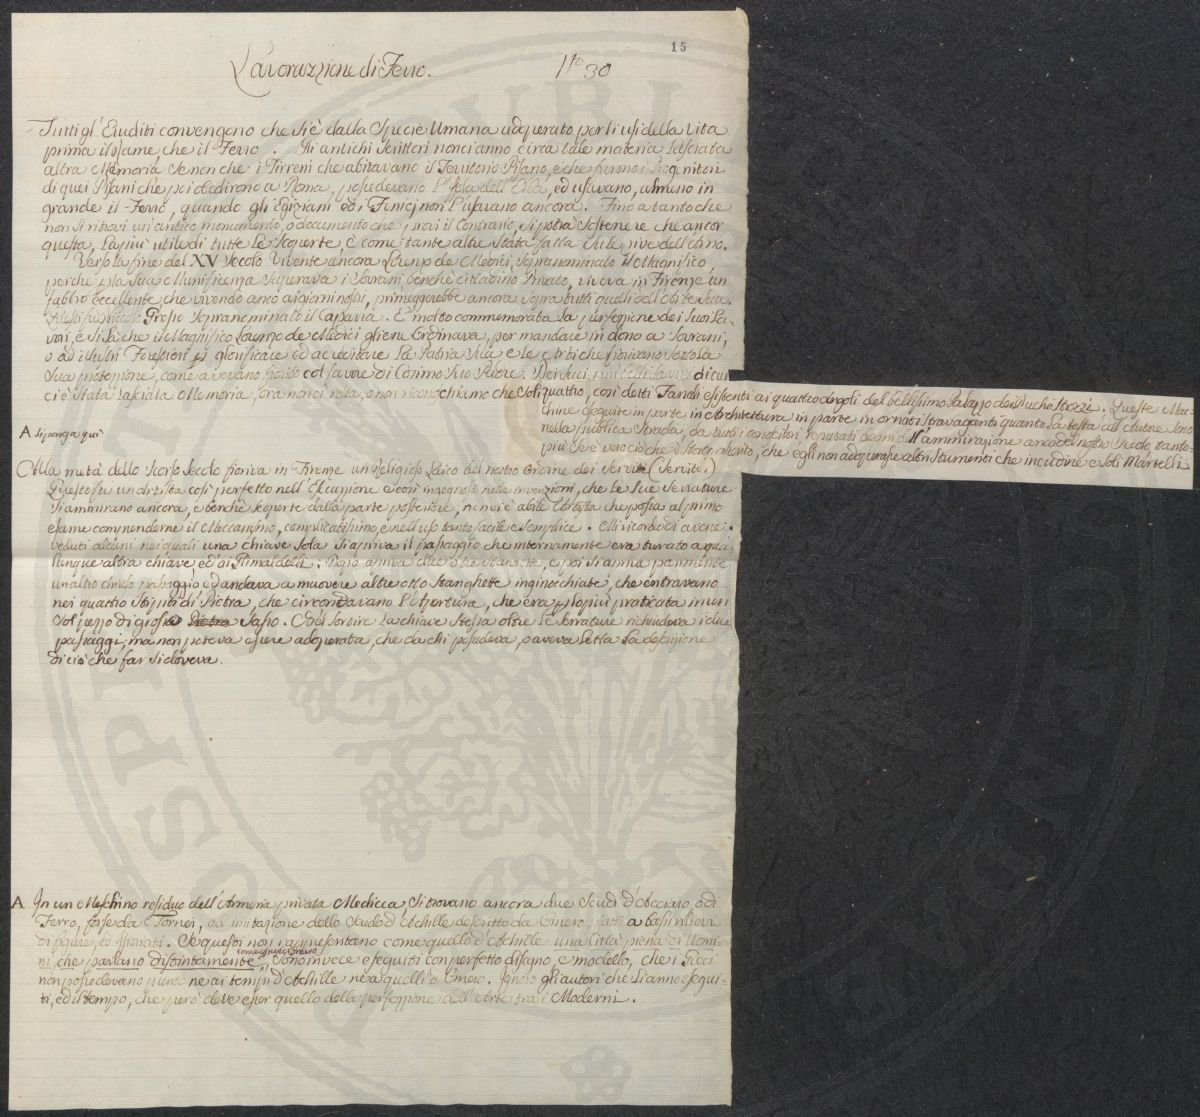 15
Lavorazzione di Ferro. 1to 30
Tutti gl'Eruditi convengono che si è dalla Specie Umana adoperato per li usi della Vita
prima il Rame, che il Ferro. Gli antichi Scrittori non ci anno circa tale materia lasciata
altra Memoria se non che i Tirreni che abitavano il Territorio Pisano, e che furono i Progenitori
di quei Pisani che poi obedirono a Roma, possedevano l'Isola dell'Elba, ed usavano, almeno in
grande il Ferro, quando gli Egiziani ed i Fenicj non l'usavano ancora. Fino a tanto che
non si ritrovi un antico monumento, o documento che provi il contrario, si potrà sostenere che ancor
questa, la più utile di tutte le scoperte, è come tante altre stata fatta sulle rive dell'Arno.
Verso la fine del XV Secolo vivente ancora Lorenzo de Medici, sopranominato il Magnifico,
perchè la sua Munificenza superava i Sovrani benchè cittadino Privato, viveva in Firenze un
fabbro eccellente, che vivendo anco ai giorni nostri, primeggerebbe ancora sopra tutti quelli dell'Arte sua.
Questi fu Niccolò Grosso sopranominato il Caparra. È molto commemorata la perfezione dei suoi La-
vori, e si sà che il Magnifico Lorenzo de Medici gliene ordinava, per mandare in dono a Sovrani,
o ad illustri Forestieri glorificare ed accreditare la Patria sua e le Arti che fiorivano sotto la
sua protezione, come avevano fiorito col favore di Cosimo suo Padre. Dei suoi più belli lavori di cui
ci è stata lasciata Memoria, ora non ci resta, o non riconoschiamo che soli quattro, così detti Fanali esistenti ai quattro angoli del bellissimo Palazzo dei Duchi Strozzi. Queste Mac-
chine eseguite in parte in Architettura in parte in ornati stravaganti quanto la testa dell'Autore sono
nella pubblica Strada, da tutti i conoscitori reputati degni dell'ammirazione anco del nostro secolo, tanto
più se è vero ciò che è stato asserito, che egli non adoperasse altri strumenti che incudine e soli Martelli
A si ponga quì
Alla metà dello scorso secolo fioriva in Firenze un Religioso Laico del nostro Ordine dei Servi (Servite)
Questo fu un Artista così perfetto nell'Esecuzione e così ingegnoso nelle invenzioni, che le sue serrature
si ammirano ancora, e benchè scoperte dalla parte posteriore, non vi è abile Artista che possa al primo
esame comprenderne il Meccanismo, complicatissimo, e nell'uso tanto facile e semplice. Mi ricordo di avere
veduti alcuni nei quali una chiave sola si apriva il passaggio che internamente era turato a qua-
lunque altra chiave, ed ai Grimaldelli. Dopo apriva due o tre stanghette, e poi si apriva parimente
un altro chiuso passaggio ed andava a muovere altre otto stanghette inginocchiate, che entravano
nei quattro stipiti di Pietra, che circondavano l'Apertura, che era per lo più praticata in muri
sol pezzo di grosso Pietra Sasso. Nel sortire la chiave stessa oltre le serrature richiudeva i due
passaggi, ma non poteva essere adoperata, che da chi possedeva, o aveva letta la descrizione
di ciò che far si doveva.
A In un Meschino residuo dell'Armeria privata Medicea si trovano ancora due Scudi d'Acciaro, o di
Ferro, forse da Tornei, ad imitazione dello Scudo d'Achille descritto da Omero, fatti a bassi rilievi
di figure, ed istoriati. Se questi non rappresentano come quello d'Achille una Città piena di Uomi-
ni che parlano distintamente, sono invece eseguiti con perfetto disegno, e modello, che i Greci
non possedevano punto nè ai tempi d'Achille nè a quelli d'Omero. Ignoro gli autori che li anno esegui-
ti, ed il tempo, che però deve esser quello della perfezzione dell'Arte tra i Moderni.